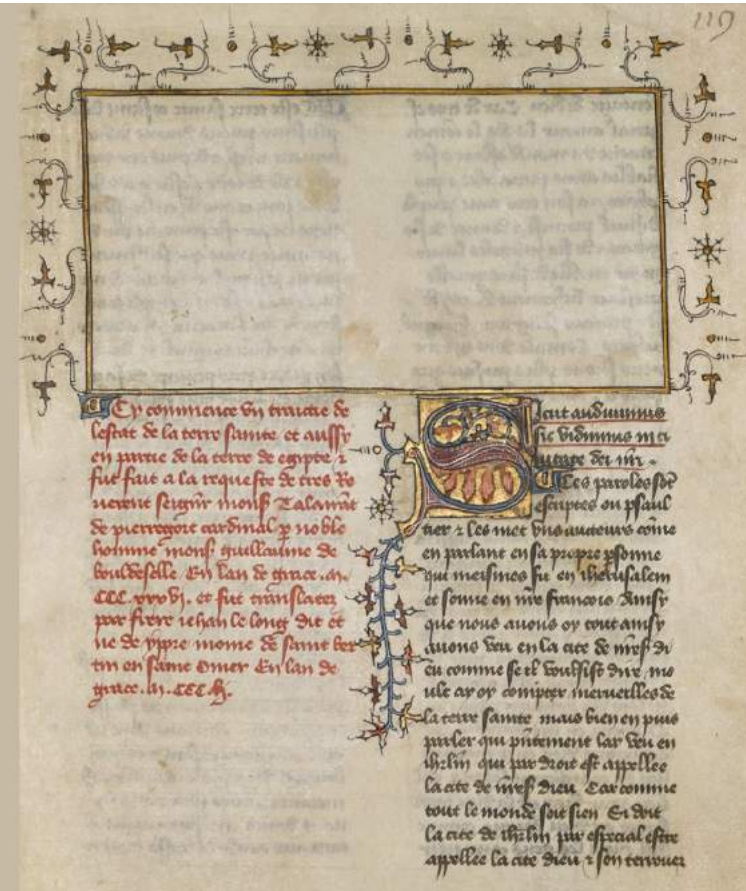 119
Cy commence vn traictie de
lestat de la terre sainte et aussy
en partie de la terre de egipte ⁊
fut fait a la requeste de tres Re
uerent seigñr monsʳ Talairãt
de pierregort cardinal ꝑ noble
homme monsʳ guillaume de
bouldeselle En lan de grace .m.
CCC. xxxvi. et fut translatez
par frere iehan le long dit et
ne de yppre moine de saint ber
tin en saint Omer En lan de
grace .m. CCC. li.
Sicut audiuimus
sic vidimus in ci
uitate dei nr̃i .
Ces paroles sõt
escriptes ou psaul
tier ⁊ les met vns aucteurs cõme
en parlant en sa propre ꝑsonne
qui meismes fu en iherusalem
et sonne en nr̃e francois Ainsy
que nous auons oy tout ainsy
auons veu en la cite de nr̃e di
eu comme se il voulsist dire
oy compter merueilles de
la terre sainte mais bien en puis
parler qui pñtement lay veu en
ihrlm qui par droit est appellee
la cite de nr̃e dieu Car comme
tout le monde soit sien Si doit
la cite de ihrlm par especial estre
appellee la cite dieu ⁊ son terrouer